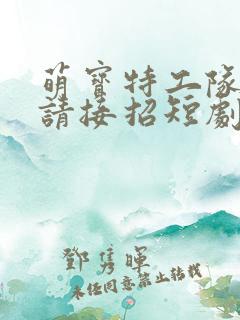 萌寶特工隊
請接招短劇
鄧雋暉
未經同意禁止轉載